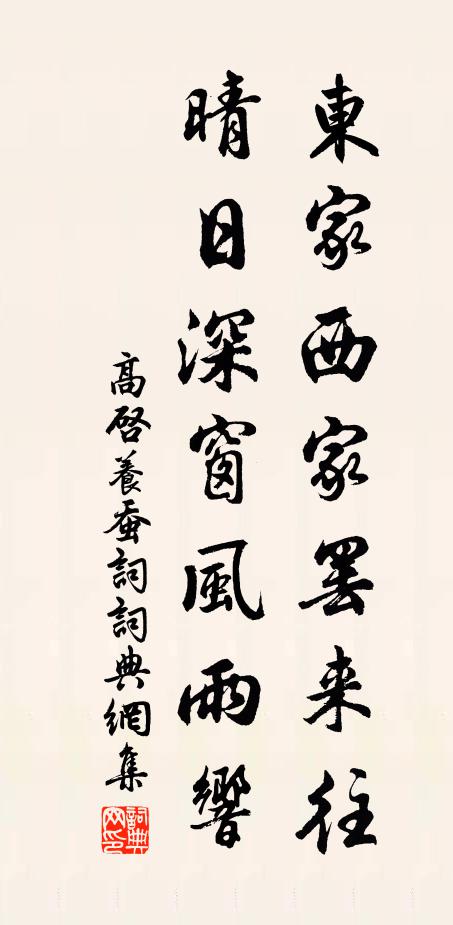 東家西家罢来往
晴日深窗風雨響
高啓養蚕詞詞典網集
詞典網印